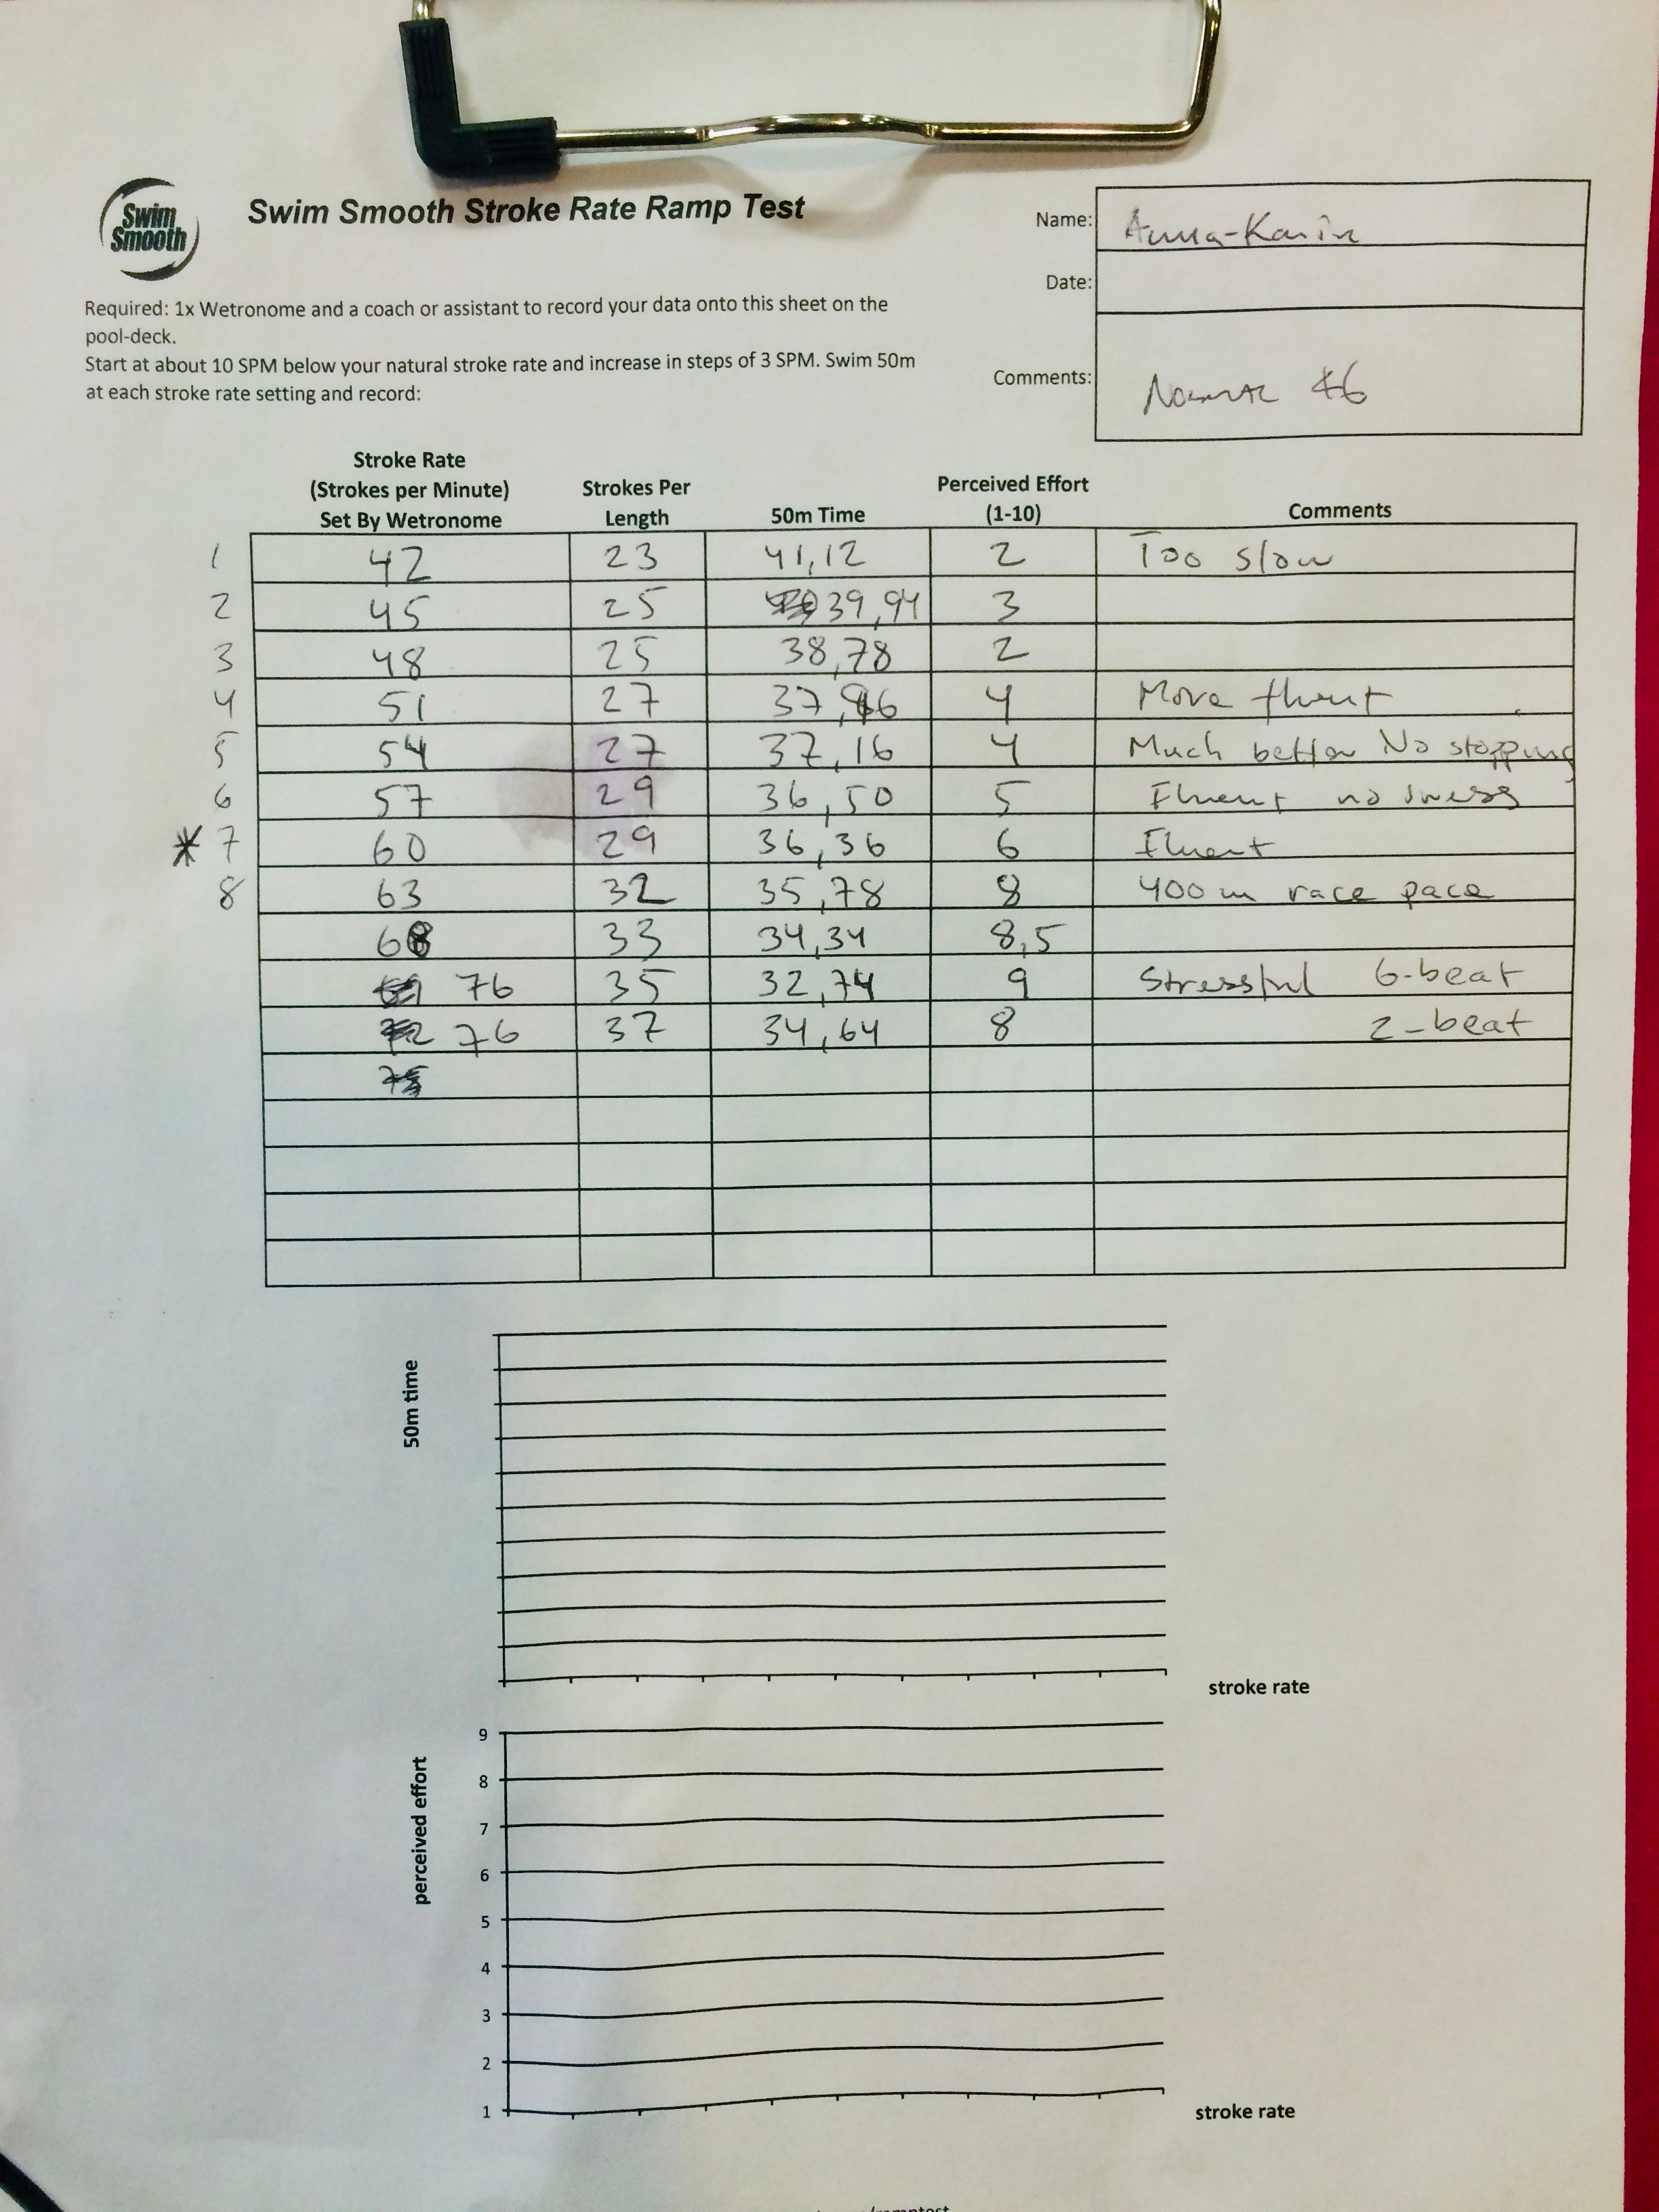 Swim Smooth
Swim Smooth Stroke Rate Ramp Test
Name: Anna-Karin
Date:
Required: 1x Wetronome and a coach or assistant to record your data onto this sheet on the
pool-deck.
Start at about 10 SPM below your natural stroke rate and increase in steps of 3 SPM. Swim 50m
at each stroke rate setting and record:
Comments: Normal 46
Stroke Rate (Strokes per Minute) Set By Wetronome Strokes Per Length 50m Time Perceived Effort (1-10) Comments
1 42 23 41,12 2 Too slow
2 45 25 39,94 3
3 48 25 38,78 2
4 51 27 4 More fluent
5 54 27 37,16 4 Much better No stopping
6 57 29 36,50 5 Fluent no stress
* 7 60 29 36,36 6 Fluent
8 63 32 35,78 8 400 m race pace
68 33 34,34 8,5
76 35 32,74 9 Stressful 6-beat
76 37 34,64 8 2-beat
50m time
stroke rate
perceived effort
9
8
7
6
5
4
3
2
1
stroke rate